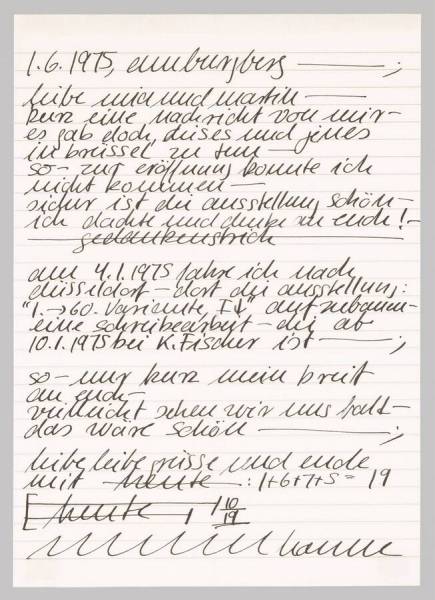 1.6.1975, emmburgberg ——— ;
liebe mia und martin ———
kurz eine nachricht von mir –
es gab doch dieses und jenes
in brüssel zu tun —
so – zur eröffnung konnte ich
nicht kommen —
sicher ist die ausstellung schön –
ich dachte und denke an euch! –
— gedankenstrich —
am 4.1.1975 fahre ich nach
düsseldorf – dort die ausstellung:
"1. → 60. Variante, I↓" aufzubauen –
eine schreibearbeit – die ab
10.1.1975 bei K. Fischer ist ——— ;
so – nur kurz mein brief
an euch –
vielleicht sehen wir uns bald –
das wäre schön ——— ;
liebe liebe grüsse und ende
mit heute : 1+6+7+5 = 19
[ heute , 1 10/19
hanne